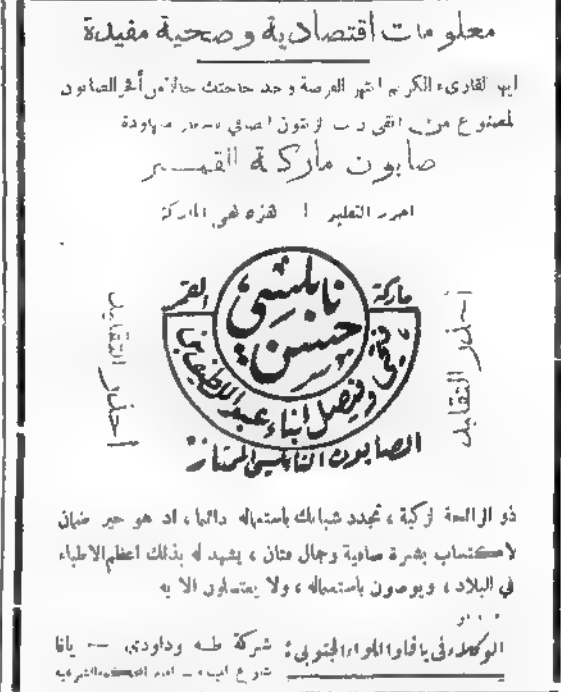 معلومات أقتصادية وصحية مفيدة
ايها القاريء الكريم انتهز الفرصة وجد حاجتك حالا من أفخر الصابون
المصنوع من انقى زيت الزيتون الصافي بسعر مهاودة
صابون ماركة القمر
احذر التقليد ! هذه هي الماركة
ماركة
القمر
نابلسي
حسن
فتحي وفيصل ابناء عبد اللطيف بن
الصابون النابلسي الممتاز
أحذر التقاليد
أحذر التقاليد
ذو الرائحة الزكية ، تجدد شبابك باستعماله دائما ، اذ هو خير ضمان
لاكتساب بشرة صافية وجمال فتان ، يشهد له بذلك اعظم الاطباء
في البلاد ، ويوصون باستعماله ، ولا يغتسلون الا به
الوكلاء في يافا واللواء الجنوبي : شركة طه وداودي — يافا
شارع